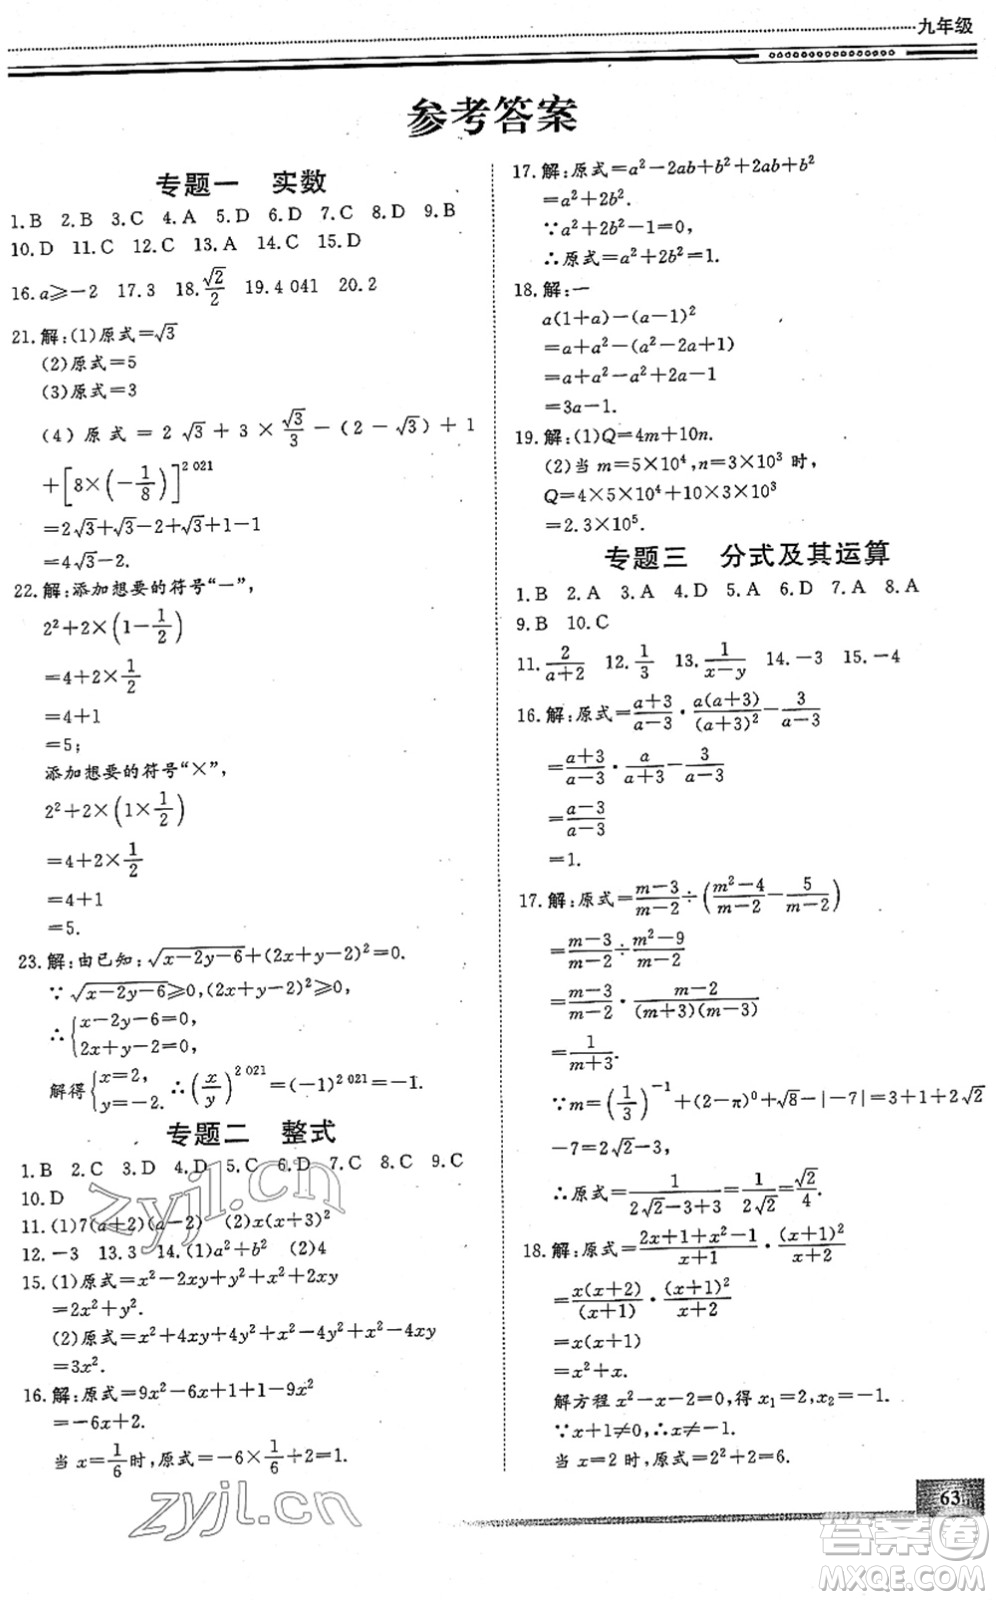 九年级
参考答案
专题一 实数
1.B 2.B 3.C 4.A 5.D 6.D 7.C 8.D 9.B
10.D 11.C 12.C 13.A 14.C 15.D
16.a⩾-2 17.3 18.√2/2 19.4 041 20.2
21.解:(1)原式=√3
(2)原式=5
(3)原式=3
(4)原式=2√3+3×√3/3-(2-√3)+1
+[8×(-1/8)]^2 021
=2√3+√3-2+√3+1-1
=4√3-2.
22.解:添加想要的符号“-”,
2²+2×(1-1/2)
=4+2×1/2
=4+1
=5;
添加想要的符号“×”,
2²+2×(1×1/2)
=4+2×1/2
=4+1
=5.
23.解:由已知:√(x-2y-6)+(2x+y-2)²=0.
∵√(x-2y-6)⩾0,(2x+y-2)²⩾0,
∴{x-2y-6=0,
2x+y-2=0,
解得{x=2, y=-2. ∴(x/y)^2 021=(-1)^2 021=-1.
专题二 整式
1.B 2.C 3.D 4.D 5.C 6.D 7.C 8.C 9.C
10.D
11.(1)7(a+2)(a-2) (2)x(x+3)²
12.-3 13.3 14.(1)a²+b² (2)4
15.(1)原式=x²-2xy+y²+x²+2xy
=2x²+y².
(2)原式=x²+4xy+4y²+2x²-4y²-4xy
=3x².
16.解:原式=9x²-6x+1+1-9x²
=-6x+2.
当x=1/6时,原式=-6×1/6+2=1.
17.解:原式=a²-2ab+b²+2ab+b²
=a²+2b².
∵a²+2b²-1=0,
∴原式=a²+2b²=1.
18.解:一
a(1+a)-(a-1)²
=a+a²-(a²-2a+1)
=a+a²-a²+2a-1
=3a-1.
19.解:(1)Q=4m+10n.
(2)当m=5×10⁴,n=3×10³时,
Q=4×5×10⁴+10×3×10³
=2.3×10⁵.
专题三 分式及其运算
1.B 2.A 3.A 4.D 5.A 6.D 7.A 8.A
9.B 10.C
11.2/(a+2) 12.1/3 13.1/(x-y) 14.-3 15.-4
16.解:原式=(a+3)/(a-3)·a(a+3)/(a+3)²-3/(a-3)
=(a+3)/(a-3)·a/(a+3)-3/(a-3)
=(a-3)/(a-3)
=1.
17.解:原式=(m-3)/(m-2)÷((m²-4)/(m-2)-5/(m-2))
=(m-3)/(m-2)÷(m²-9)/(m-2)
=(m-3)/(m-2)·(m-2)/(m+3)(m-3)
=1/(m+3).
∵m=(1/3)⁻¹+(2-π)⁰+√8-|-7|=3+1+2√2
-7=2√2-3,
∴原式=1/(2√2-3+3)=1/(2√2)=√2/4.
18.解:原式=(2x+1+x²-1)/(x+1)·(x+1)²/(x+2)
=x(x+2)/(x+1)·(x+1)²/(x+2)
=x(x+1)
=x²+x.
解方程x²-x-2=0,得x₁=2,x₂=-1.
∵x+1≠0,∴x≠-1.
∴当x=2时,原式=2²+2=6.
63
zyjl.cn
zyjl.cn
答案圈
MXQE.COM